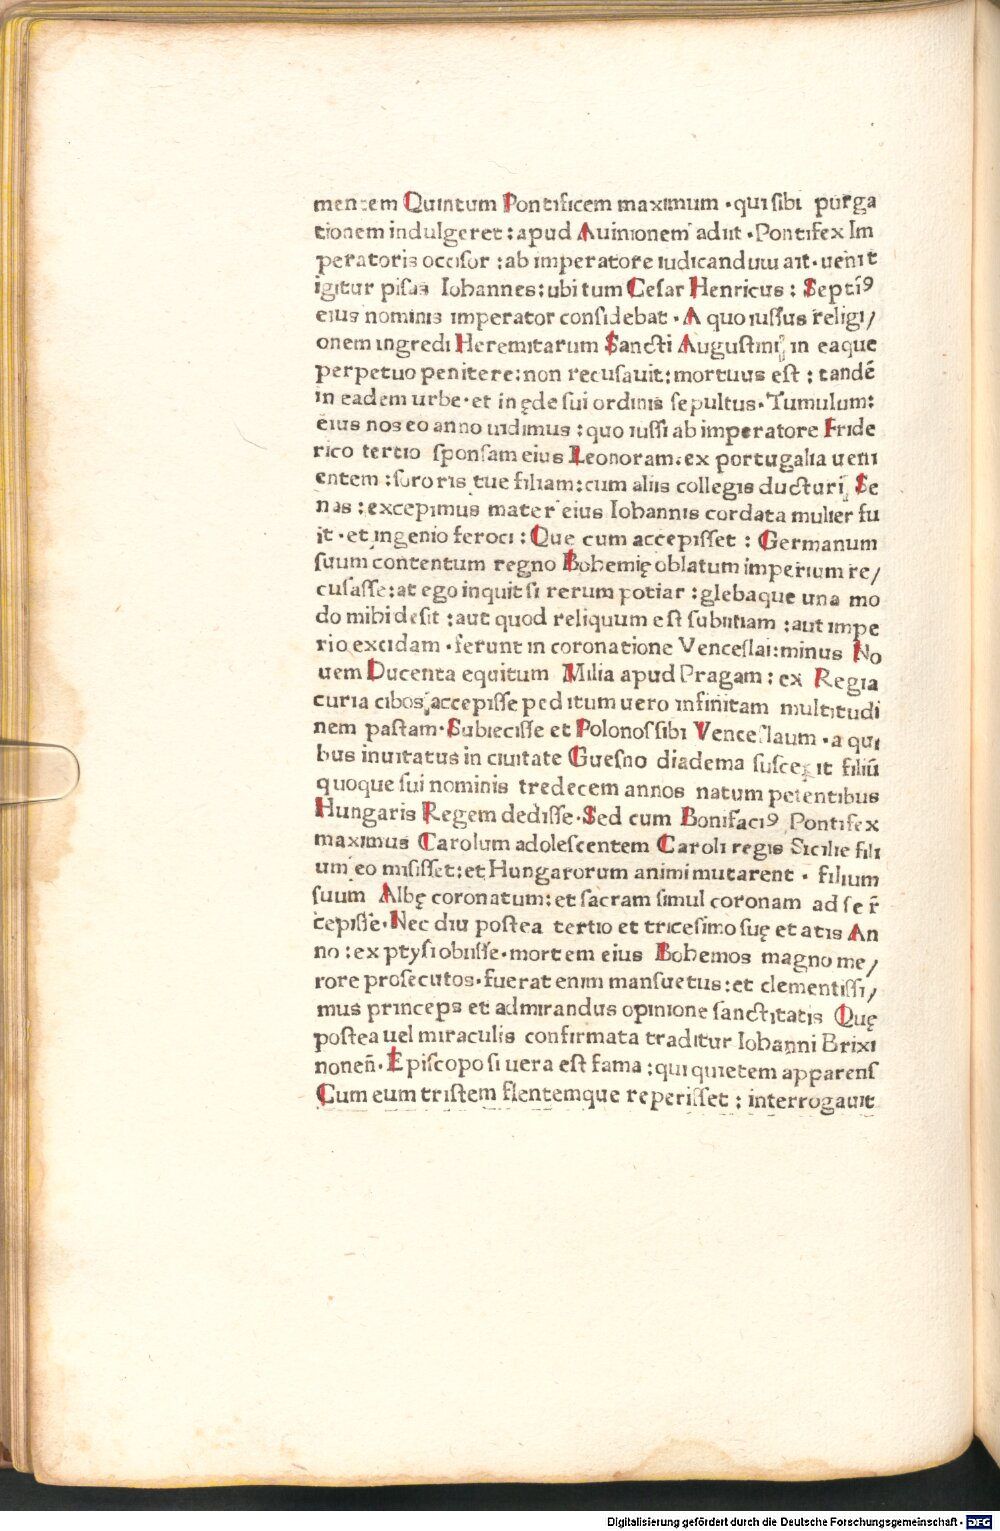 mentem Quintum Pontificem maximum · qui sibi purga
tionem indulgeret : apud Auinionem adiit · Pontifex Im
peratoris occisor : ab imperatore iudicandum ait · uenit
igitur pisas Iohannes : ubi tum Cesar Henricus : Septi᷑ꝰ
eius nominis imperator considebat · A quo iussus religi/
onem ingredi Heremitarum Sancti Augustini, in eaque
perpetuo penitere : non recusauit : mortuus est : tandē
in eadem urbe · et in ęde sui ordinis sepultus · Tumulum :
eius nos eo anno uidimus : quo iussi ab imperatore Fride
rico tertio sponsam eius Leonoram. ex portugalia ueni
entem : sororis tue filiam : cum aliis collegis ducturi, Se
nas : excepimus mater eius Iohannis cordata mulier fu
it · et ingenio feroci : Que cum accepisset : Germanum
suum contentum regno Bohemię oblatum imperium re/
cusasse : at ego inquit si rerum potiar : glebaque una mo
do mihi desit : aut quod reliquum est subnitiam : aut impe
rio excidam · ferunt in coronatione Venceslai : minus No
uem Ducenta equitum Milia apud Pragam : ex Regia
curia cibos accepisse peditum uero infinitam multitudi
nem pastam · Subiecisse et Polonos sibi Venceslaum · a qui
bus inuitatus in ciuitate Guesno diadema suscepit filiū
quoque sui nominis tredecem annos natum petentibus
Hungaris Regem dedisse · Sed cum Bonifaciꝰ Pontifex
maximus Carolum adolescentem Caroli regis Sicilie fili
um eo misisset : et Hungarorum animi mutarent · filium
suum Albę coronatum : et sacram simul coronam ad se r̄
cepisse · Nec diu postea tertio et tricesimo suę etatis An
no : ex ptysi obiisse · mortem eius Bohemos magno me/
rore prosecutos · fuerat enim mansuetus : et clementissi/
mus princeps et admirandus opinione sanctitatis Quę
postea uel miraculis confirmata traditur Iohanni Brixi
nonen̄ · Episcopo si uera est fama : qui quietem apparens
Cum eum tristem flentemque reperisset : interrogauit
Digitalisierung gefördert durch die Deutsche Forschungsgemeinschaft - DFG